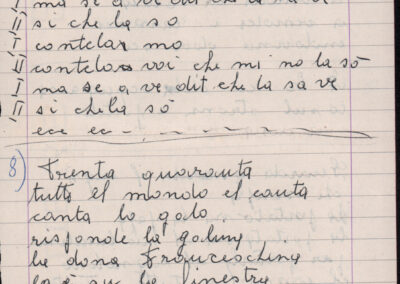 ma se a ve dit che la sa ve
si che la so
contelar mo
contelar voi che mi no la sō
ma se a ve dit che la sa ve
si che la sō
ecc ec
8) Trenta quaranta
tutto el mondo el canta
canta lo galo
risponde la galina
la dona Francieschina
la è su la finestra